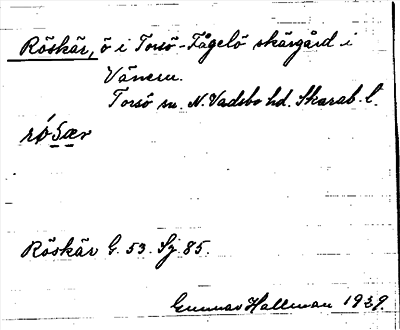 Röskär, ö i Torsö-Fågelö skärgård i
Vänern.
Torsö sn. N. Vadsbo hd. Skarab. l.
Röskär G. 53. Sj 85.
Gunnar Hallman 1929.